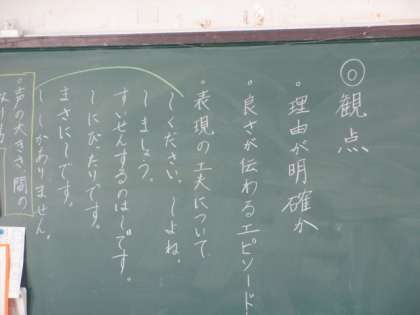 ◎観点
・理由が明確か
・良さが伝わるエピソード
・表現の工夫について
〜ください。〜よね。
〜しましょう。
すいせんするのは〜です。
〜にぴったりです。
まさに〜です。
〜しかありません。
・声の大きさ、間の